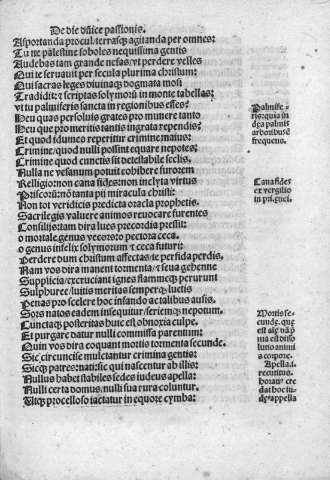 De die dñice passionis.
Asportanda procul, terrasq; agitanda per omnes:
Tu ne palestine soboles nequissima gentis
Audebas tam grande nefas, vt perdere velles
Qui te seruauit per secula plurima christum:
Qui sacras leges diuinaq; dogmata mosi
Tradidit: τ scriptas solymorũ in monte tabellas:
vtu palmiferis sancta in regionibus esses?
Heu quas persoluis grates pro munere tanto
Heu que pro meritis tantis ingrata rependis?
Et quod iduneo reperitur crimine maius:
Crimine, quod nulli possint equare nepotes:
Crimine quod cunctis sit detestabile seclis.
Nulla ne vesanum potuit cohibere furorem
Relligio: non cana fides: non inclyta virtus
Priscorũ: nõ tanta pij miracula christi:
Non tot veridicis predicta oracla prophetis.
Sacrilegis valuere animos reuocare furentes
Consilijs: tam dira lues precordia pressit:
o mortale genus vecors: o pectora ceca.
o genus infelix solymorum τ ceca futuri:
Perdere dum christum affectas, te perfida perdis,
Nam vos dira manent tormenta, τ seua gehenne
Supplicia, excruciant ignes flammeq; perurunt
Sulphuree, luitis meritas semperq; luetis
Penas pro scelere hoc infando ac talibus ausis.
Sors natos eadem insequitur, seriemq; nepotum.
Cunctaq; posteritas huic est obnoxia culpe.
Et purgare datur nulli commissa parentum:
Quin vos dira coquant mortis tormenta secunde.
Sic circuncise mulctantur crimina gentis:
Sicq; patres: nati: sic qui nascentur ab illis:
Nullus habet stabiles sedes iudeus apella:
Nulli certa domus, nulli sua rura coluntur.
Utq; procelloso iactatur in equore cymba:
Palmife-
ris: quia in
dea palmis
arboribus ẽ
frequens.
Cana fides
ex vergilio
in pri. enei.
Mortis se-
cunde. que
est aĩe nã p̃
ma est disso
lutio animi
a corpore.
Apella. i.
recutitus.
horati⁹ cre
dat hoc in-
q̃t apella